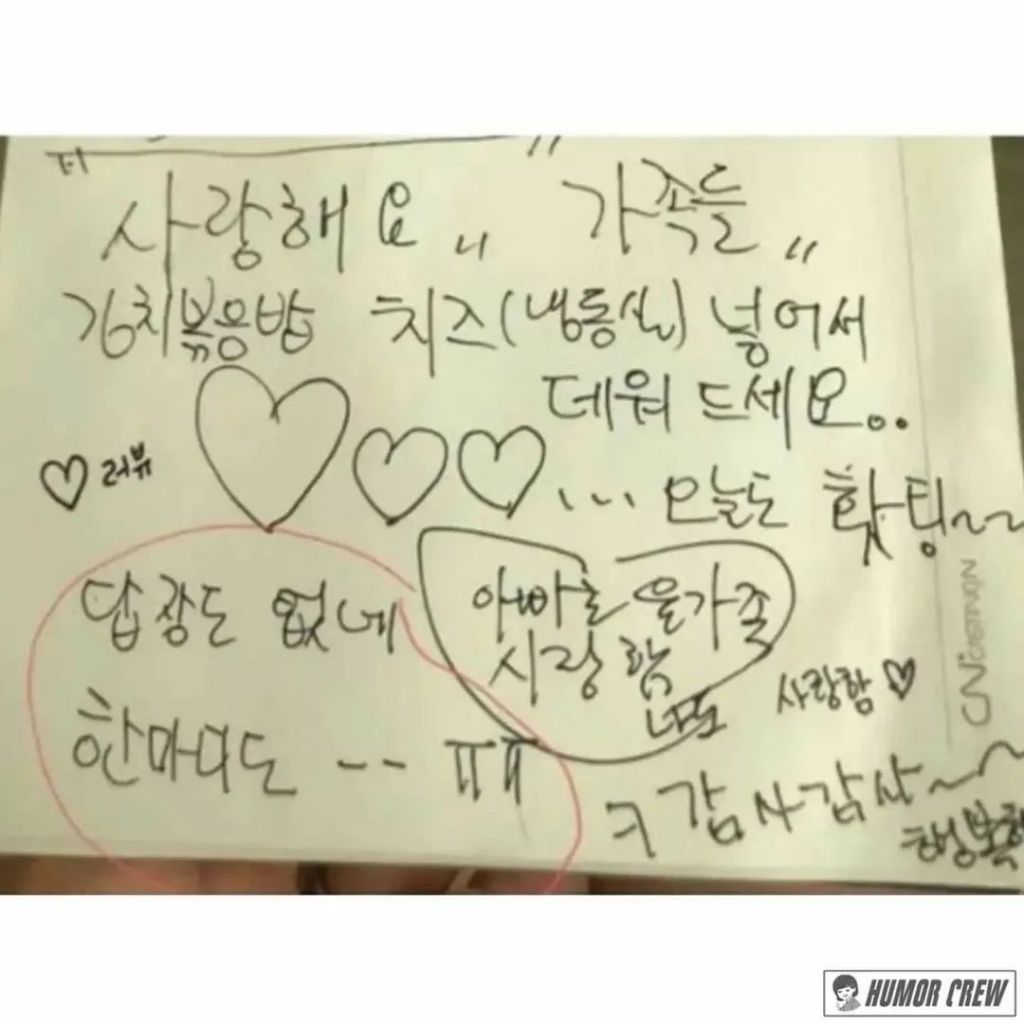 사랑해요 〃 가족들 〃
김치볶음밥 치즈(냉동실) 넣어서
데워 드세요..
♡ 러뷰
... 오늘도 홧팅~~
답장도 없네
한마디도 -- ㅠㅠ
아빠도 울가족
사랑함
나도
사랑함♡
ㅋ감사감사~~
행복해
HUMOR CREW